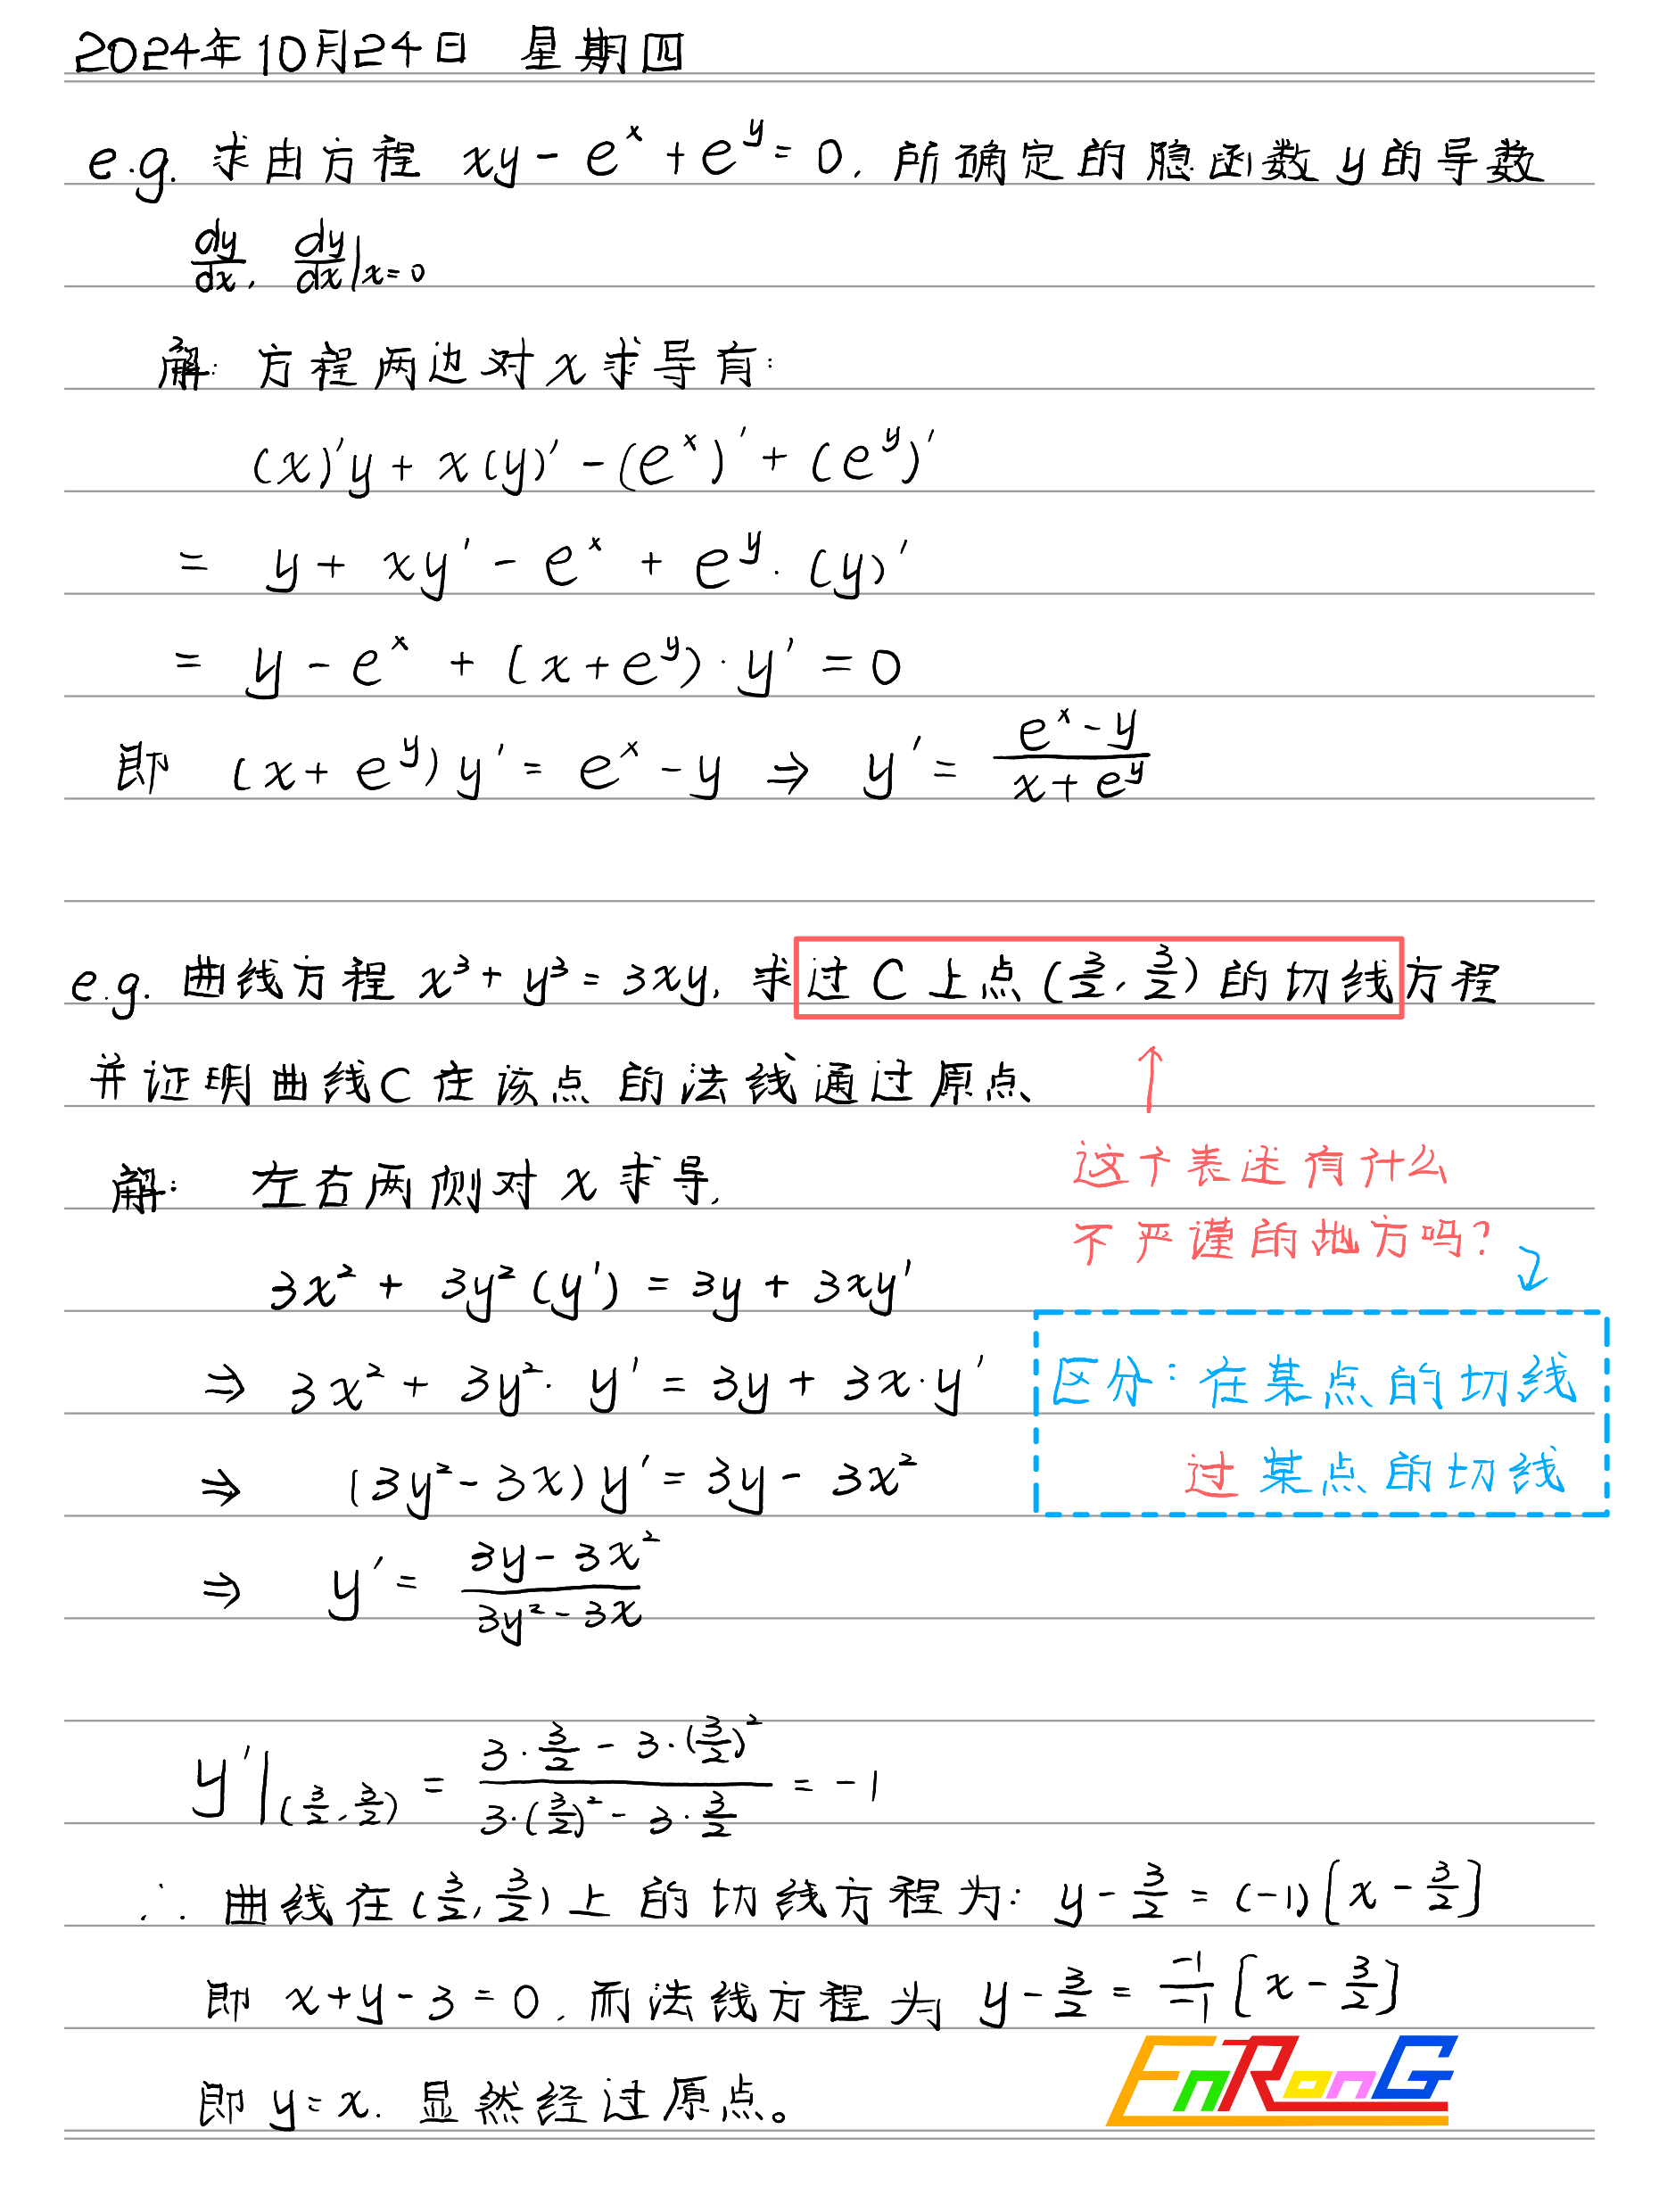 2024年10月24日 星期四
e.g. 求由方程 xy - e^x + e^y = 0, 所确定的隐函数 y 的导数
dy/dx, dy/dx|x=0
解: 方程两边对 x 求导有:
(x)'y + x(y)' - (e^x)' + (e^y)'
= y + xy' - e^x + e^y · (y)'
= y - e^x + (x + e^y) · y' = 0
即 (x + e^y) y' = e^x - y ⇒ y' = (e^x - y)/(x + e^y)
e.g. 曲线方程 x³ + y³ = 3xy, 求过 C 上点 (3/2, 3/2) 的切线方程
并证明曲线C在该点的法线通过原点
这个表述有什么
不严谨的地方吗?
区分: 在某点的切线
过某点的切线
解: 左右两侧对 x 求导,
3x² + 3y²(y') = 3y + 3xy'
⇒ 3x² + 3y² · y' = 3y + 3x · y'
⇒ (3y² - 3x) y' = 3y - 3x²
⇒ y' = (3y - 3x²)/(3y² - 3x)
y'|(3/2, 3/2) = (3 · 3/2 - 3 · (3/2)²)/(3 · (3/2)² - 3 · 3/2) = -1
∴ 曲线在 (3/2, 3/2) 上的切线方程为: y - 3/2 = (-1)[x - 3/2]
即 x + y - 3 = 0, 而法线方程为 y - 3/2 = -1/-1 [x - 3/2]
即 y = x. 显然经过原点。
EnRonG